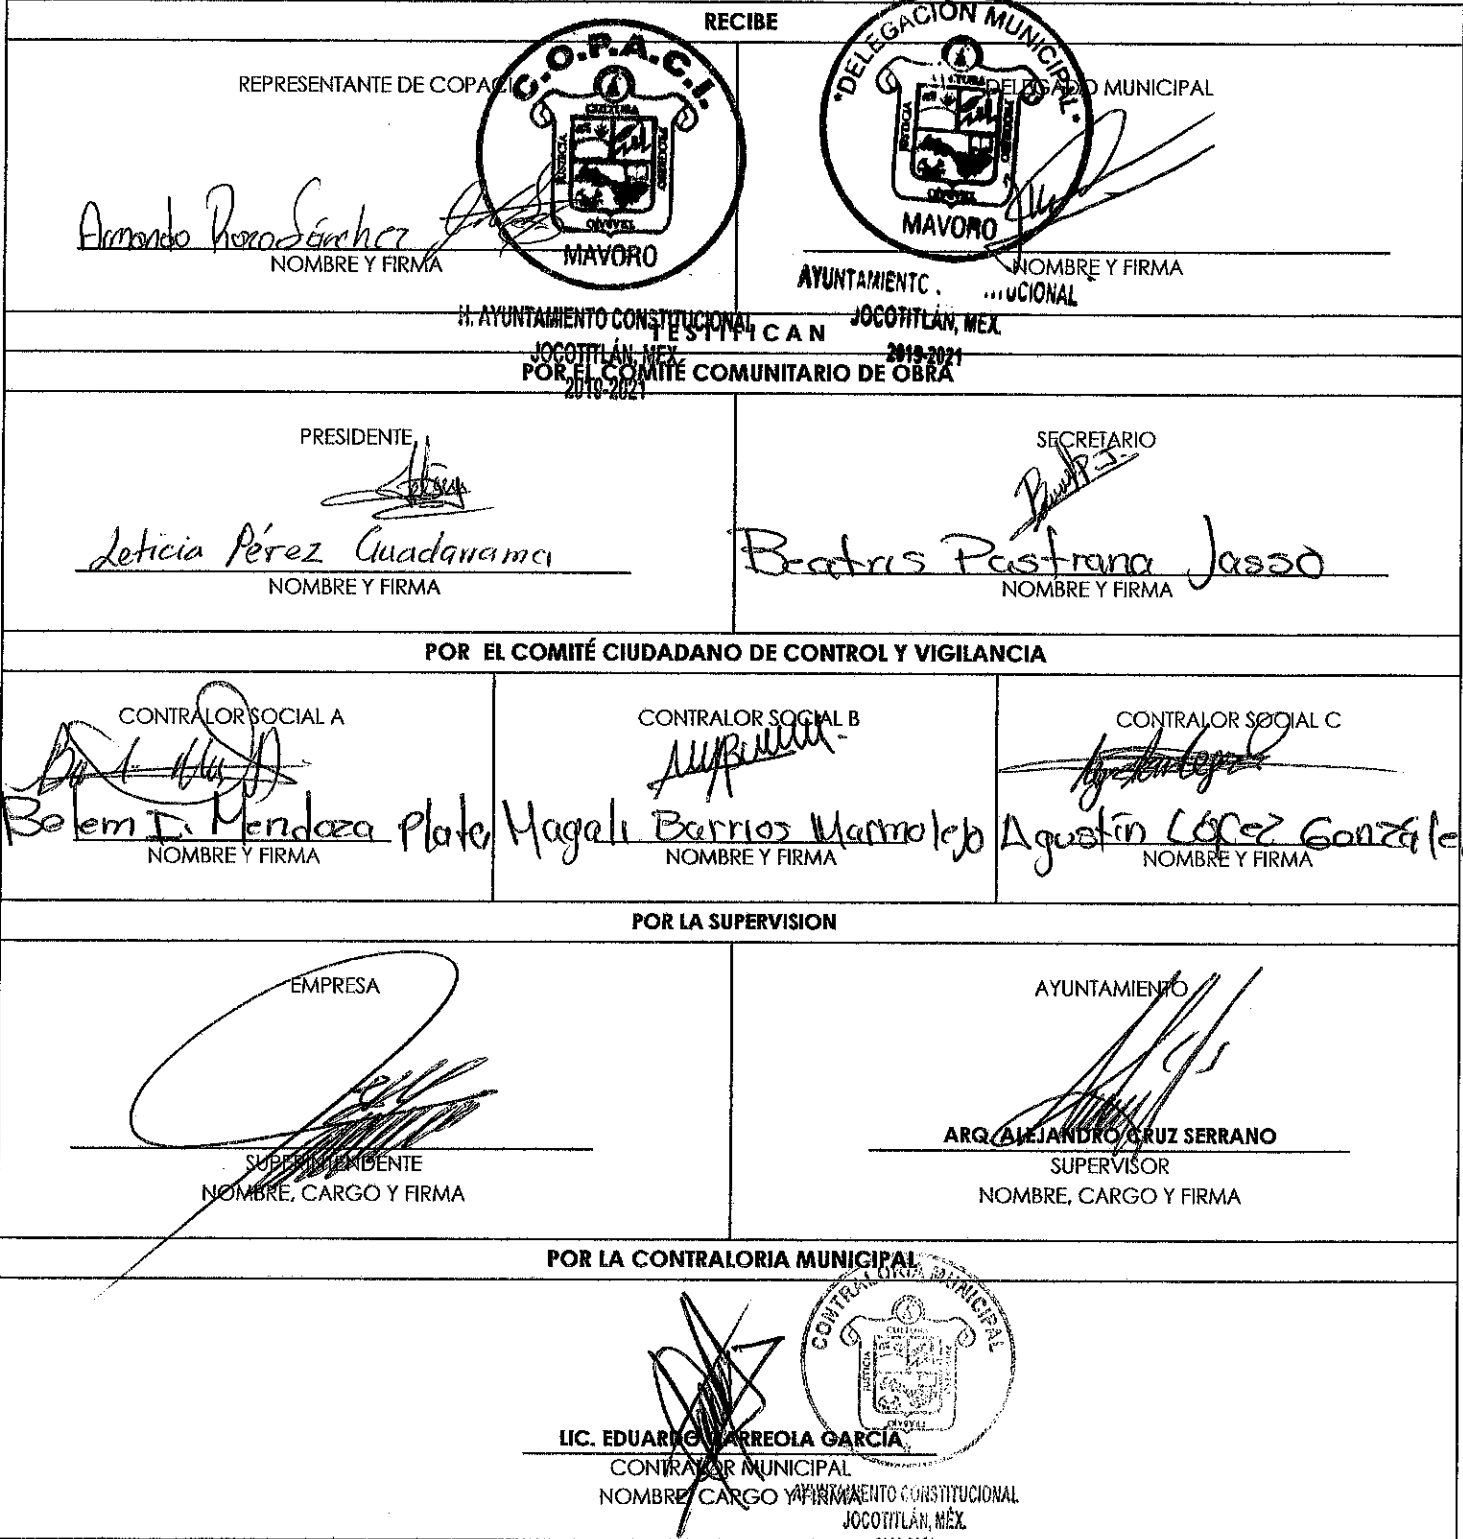 RECIBE
REPRESENTANTE DE COPACI
C.O.P.A.C.I.
CULTURA
JUSTICIA
PROGRESO
TRABAJO
MAVORO
Armando Rozo Sánchez
NOMBRE Y FIRMA
H. AYUNTAMIENTO CONSTITUCIONAL
JOCOTITLÁN, MEX.
2019-2021
*DELEGACIÓN MUNICIPAL*
DELEGADO MUNICIPAL
JUSTICIA
PROGRESO
TRABAJO
MAVORO
NOMBRE Y FIRMA
AYUNTAMIENTO
JOCOTITLÁN, MEX.
2019-2021
TESTIFICAN
POR EL COMITÉ COMUNITARIO DE OBRA
PRESIDENTE
Leticia Pérez Guadarrama
NOMBRE Y FIRMA
SECRETARIO
Beatris Pastrana Jasso
NOMBRE Y FIRMA
POR EL COMITÉ CIUDADANO DE CONTROL Y VIGILANCIA
CONTRALOR SOCIAL A
Belem I. Mendoza Plata
NOMBRE Y FIRMA
CONTRALOR SOCIAL B
Magali Barrios Marmolejo
NOMBRE Y FIRMA
CONTRALOR SOCIAL C
Agustín López Gonzále
NOMBRE Y FIRMA
POR LA SUPERVISION
EMPRESA
SUPERINTENDENTE
NOMBRE, CARGO Y FIRMA
AYUNTAMIENTO
ARQ. ALEJANDRO CRUZ SERRANO
SUPERVISOR
NOMBRE, CARGO Y FIRMA
POR LA CONTRALORIA MUNICIPAL
CONTRALORIA MUNICIPAL
CULTURA
JUSTICIA
TRABAJO
LIC. EDUARDO ARREOLA GARCÍA
CONTRALOR MUNICIPAL
NOMBRE, CARGO Y FIRMA
AYUNTAMIENTO CONSTITUCIONAL
JOCOTITLÁN, MÉX.